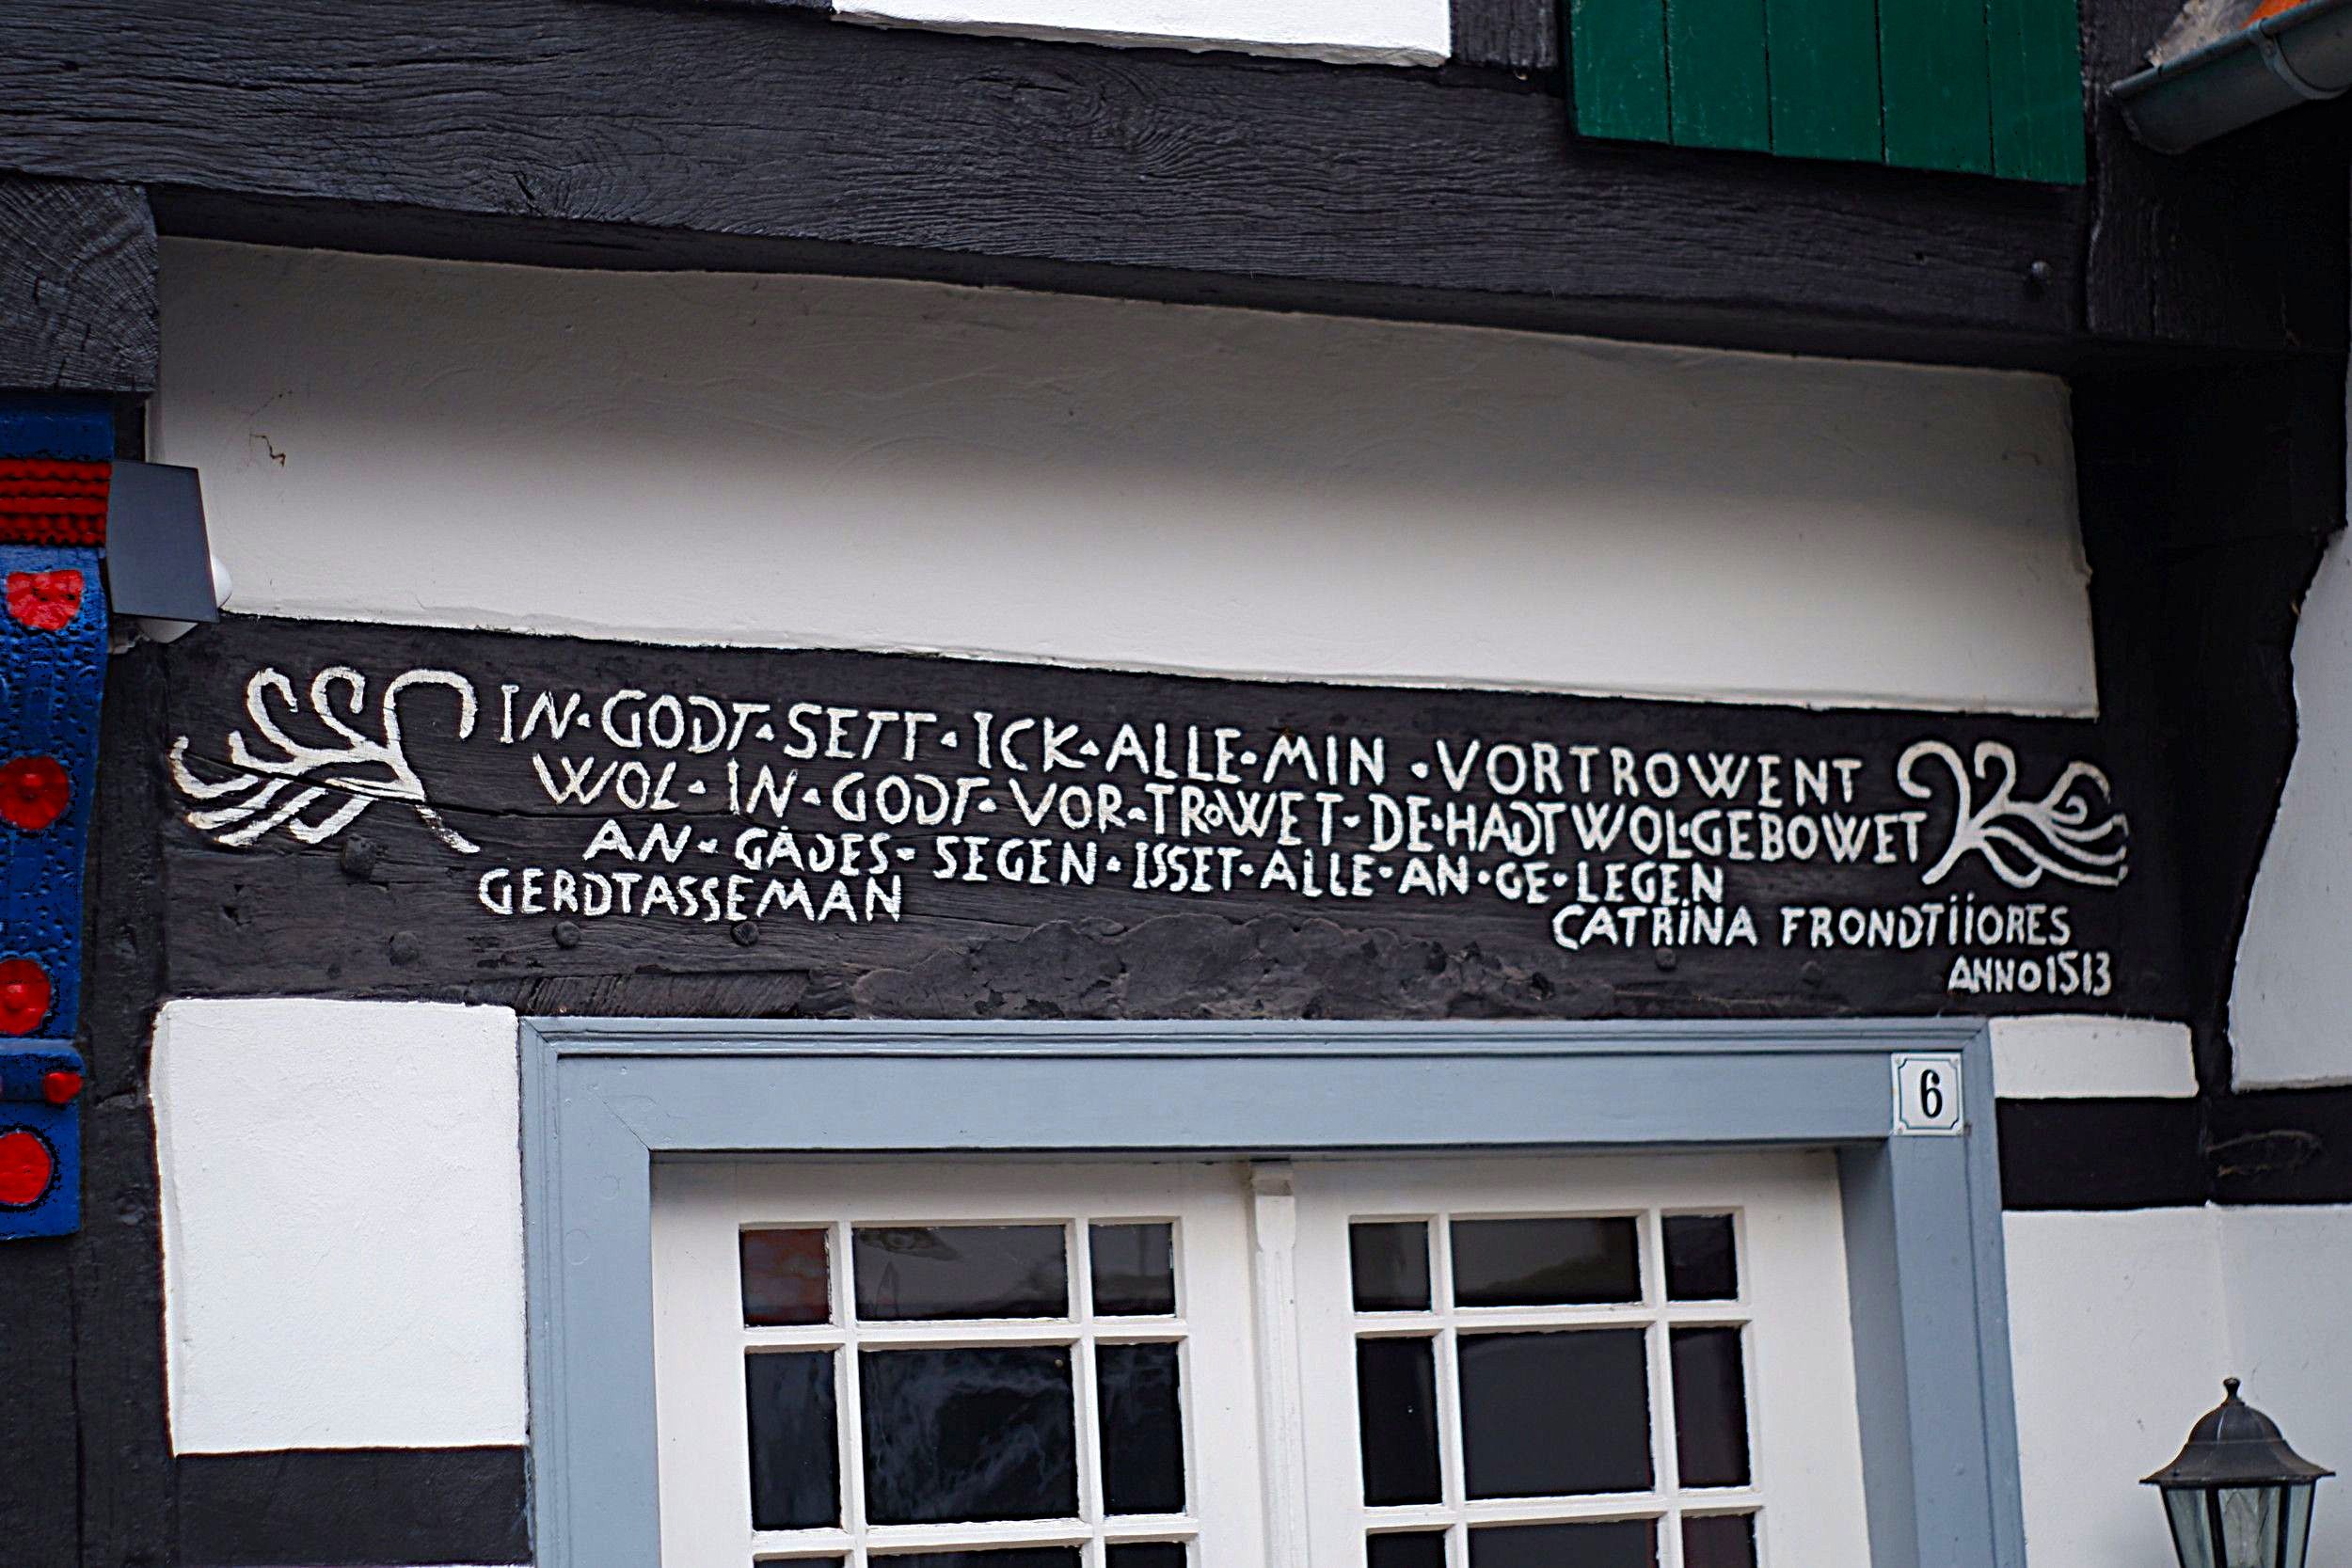 IN·GODT·SETT·ICK·ALLE·MIN·VORTROWENT
WOL·IN·GODT·VOR·TROWET·DE·HADTWOL·GEBOWET
AN·GADES·SEGEN·ISSET·ALLE·AN·GE·LEGEN
GERDTASSEMAN
CATRiNA FRONDTiiORES
ANNO1513
6